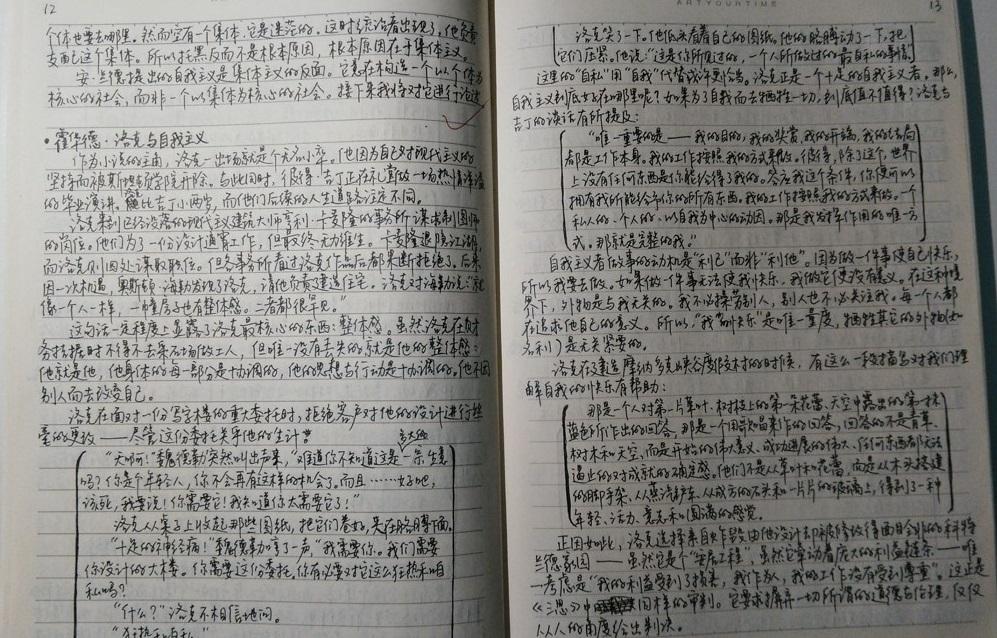 12
个体也要去哪里。然而空有一个集体，它是迷茫的。这时统治者出现了，他负责
支配这个集体。所以托黑反而不是根本原因，根本原因在于集体主义。
安·兰德提出的自我主义是集体主义的反面。它意在构造一个以个体为
核心的社会，而非一个以集体为核心的社会。接下来我将对它进行论述
·霍华德·洛克与自我主义
作为小说的主角，洛克一出场就是个天寡小卒。他因为自己对现代主义的
坚持而被斯坦顿学院开除。与此同时，彼得·吉丁正在礼堂做一场热情洋溢
的毕业演讲。比吉丁小两岁，而他们后续的人生道路注定不同。
洛克来到已经没落的现代主义建筑大师亨利·卡麦隆的事务所谋求制图师
的岗位。他们为了一份设计通宵工作，但最终无力维生。卡麦隆退隐江湖，
而洛克则四处谋取职位。但各事务所看过洛克作品后都果断拒绝了。后来
因一次机遇，奥斯顿·海勒发现了洛克，请他负责建造住宅。洛克对海勒说："就
像一个人一样，一幢房子也有整体感。二者都很罕见。"
这句话一定程度上显露了洛克最核心的东西：整体感。虽然洛克在财
务拮据时不得不去采石场做工人，但唯一没有丢失的就是他的整体感：
他就是他，他身体的每一部分是协调的，他的思想与行动是协调的。他不因
别人而去改变自己。
洛克在面对一份写字楼的重大委托时，拒绝客户对他的设计进行丝
毫的更改——尽管这份委托关乎他的生计
"天啊！"魏德勒突然叫出声来，"难道你不知道这是一桩多大的生意
吗？你是个年轻人，你不会再有这样的机会了。而且……好吧，
该死，我要说！你需要它！我知道你太需要它了！"
洛克从桌子上收起那些图纸，把它们卷好，夹在胳膊下面。
"十足的神经病！"魏德勒哼了一声，"我需要你。我们需要
你设计的大楼。你需要这份委托。你有必要对它这么狂热和自
私吗？"
"什么？"洛克不相信地问。
"狂热和自私。"
ARTYOURTIME
13
洛克笑了一下。他低头看着自己的图纸。他的胳膊动了一下，把
它们压紧。他说："这是你所见过的，一个人所做过的最自私的事情"
这里的"自私"用"自我"代替或许更恰当。洛克正是一个十足的自我主义者。那么，
自我主义到底好在哪里呢？如果为了自我而去牺牲一切，到底值不值得？洛克与
吉丁的谈话有所提及：
"唯一重要的是——我的目的，我的奖赏，我的开端，我的结局
都是工作本身。我的工作按照我的方式来做。彼得，除了这个，世界
上没有任何东西是你能给得了我的。答应我这个条件，你便可以
拥有我所能给予你的所有东西。我的工作按照我的方式来做。一个
私人的、个人的、以自我为中心的动因。那是我发挥作用的唯一方
式。那就是完整的我。"
自我主义者做事的动机是"利己"而非"利他"。因为做一件事使自己快乐，
所以我要去做。如果做一件事无法使我快乐，我做它便没有意义。在这种境
界下，外物是与我无关的。我不必操纵别人，别人也不必关注我。每一个人都
在追求他自己的意义。所以，"我的快乐"是唯一量度，牺牲其它的外物（如
名利）是无关紧要的。
洛克在建造摩纳多克峡谷度假村的时候，有这么一段描写对我们理
解自我的快乐有帮助：
那是一个人对第一片草叶、树枝上的第一朵花蕾、天空中露出的第一抹
蓝色所作出的回答。那是一个用歌唱来作的回答，回答的不是青草、
树木和天空，而是开始的伟大意义、成功进展的伟大、任何东西都无法
遏止的对成就的确定感。他们不是从草叶和花蕾，而是从木头搭建
的脚手架、从蒸汽铲车、从成方的石头和一片片的玻璃上，得到了一种
年轻、活力、意志和圆满的感觉。
正因如此，洛克选择亲自炸毁由他设计却被修改得面目全非的科特
兰德家园——虽然它是个"安居工程"，虽然它牵动着庞大的利益链条——唯
一考虑是"我的利益受到了损害，我作为人，我的工作没有受到尊重"。这正是
《三思》中同样的审判。它要求摒弃一切所谓的道德与伦理，仅仅
从人的角度给出判决。